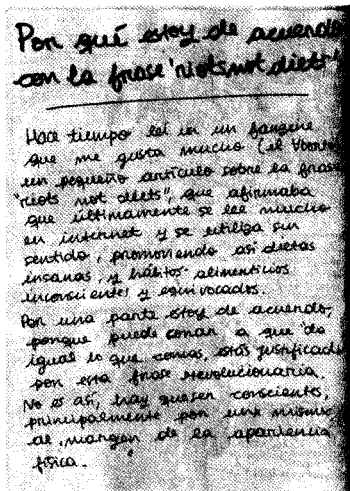 Por qué estoy de acuerdo
con la frase 'riots not diets'
Hace tiempo leí en un fanzine
que me gusta mucho (el
un pequeño artículo sobre la frase
"riots not diets", que afirmaba
que últimamente se lee mucho
en internet y se utiliza sin
sentido, promoviendo así dietas
insanas, y hábitos alimenticios
inconscientes y equivocados.
Por una parte estoy de acuerdo,
porque puede sonar a que "da
igual lo que comas, estás justificada
por esta frase revolucionaria.
No es así, hay que ser consciente,
principalmente por una misma
al margen de la apariencia
física.